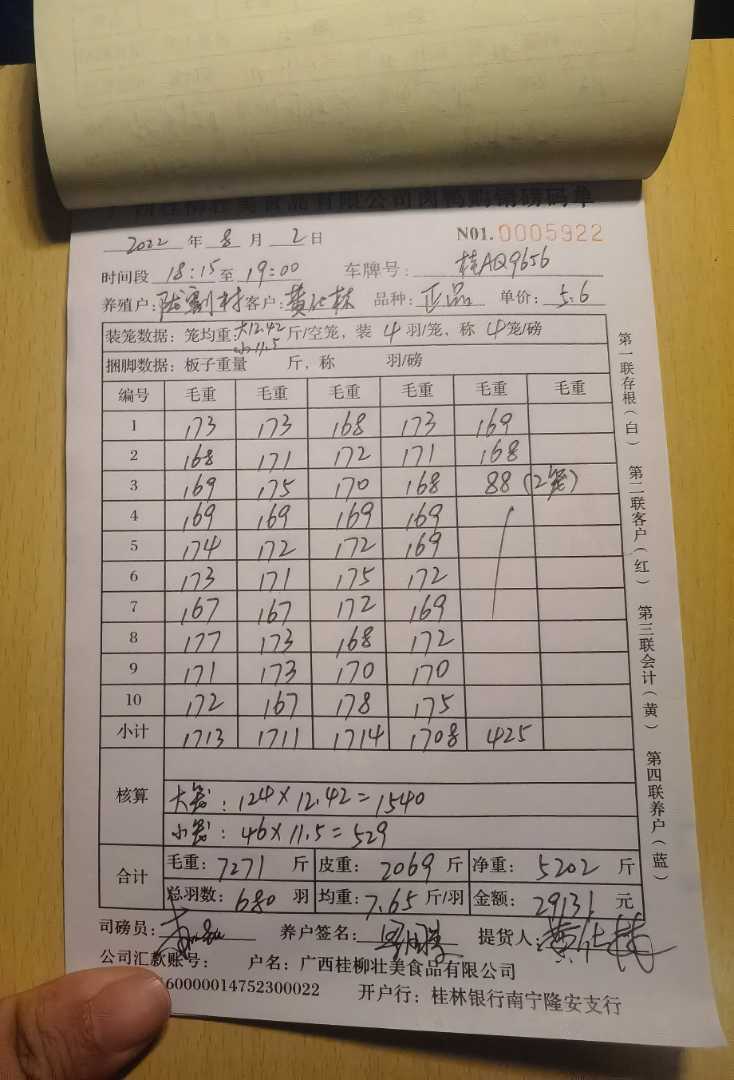 广西桂柳壮美食品有限公司肉鸭购销磅码单
2022 年 8 月 2 日 N01. 0005922
时间段 18:15 至 19:00 车牌号: 桂AQ9656
养殖户: 客户: 品种: 正品 单价: 5.6
装笼数据: 笼均重: 大12.42 小11.5 斤/空笼, 装 4 羽/笼, 称 4 笼/磅
捆脚数据: 板子重量 斤, 称 羽/磅
编号 毛重 毛重 毛重 毛重 毛重 毛重
1 173 173 168 173 169
2 168 171 172 171 168
3 169 175 170 168 88 (2笼)
4 169 169 169 169
5 174 172 172 169
6 173 171 175 172
7 167 167 172 169
8 177 173 168 172
9 171 173 170 170
10 172 167 178 175
小计 1713 1711 1714 1708 425
核算
大笼: 124×12.42=1540
小笼: 46×11.5=529
合计
毛重: 7271 斤 皮重: 2069 斤 净重: 5202 斤
总羽数: 680 羽 均重: 7.65 斤/羽 金额: 29131 元
司磅员: 养户签名: 提货人:
公司汇款账号: 户名: 广西桂柳壮美食品有限公司
60000014752300022 开户行: 桂林银行南宁隆安支行
第一联存根(白) 第二联客户(红) 第三联会计(黄) 第四联养户(蓝)